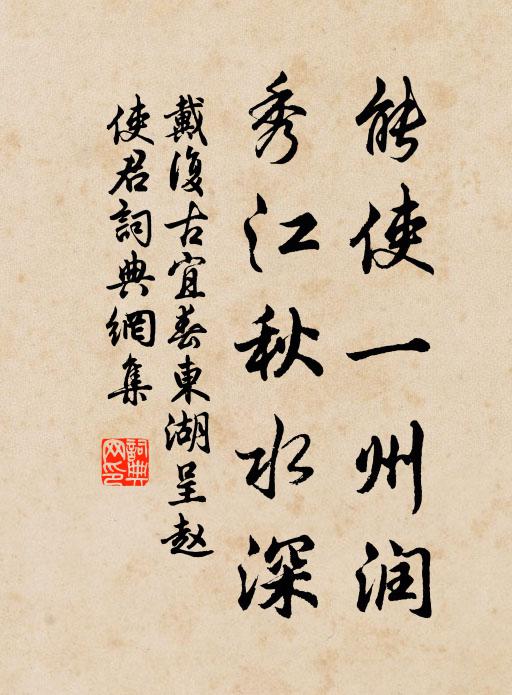 能使一州润
秀江秋水深
戴復古宜春東湖呈赵
使君詞典網集
詞典网印